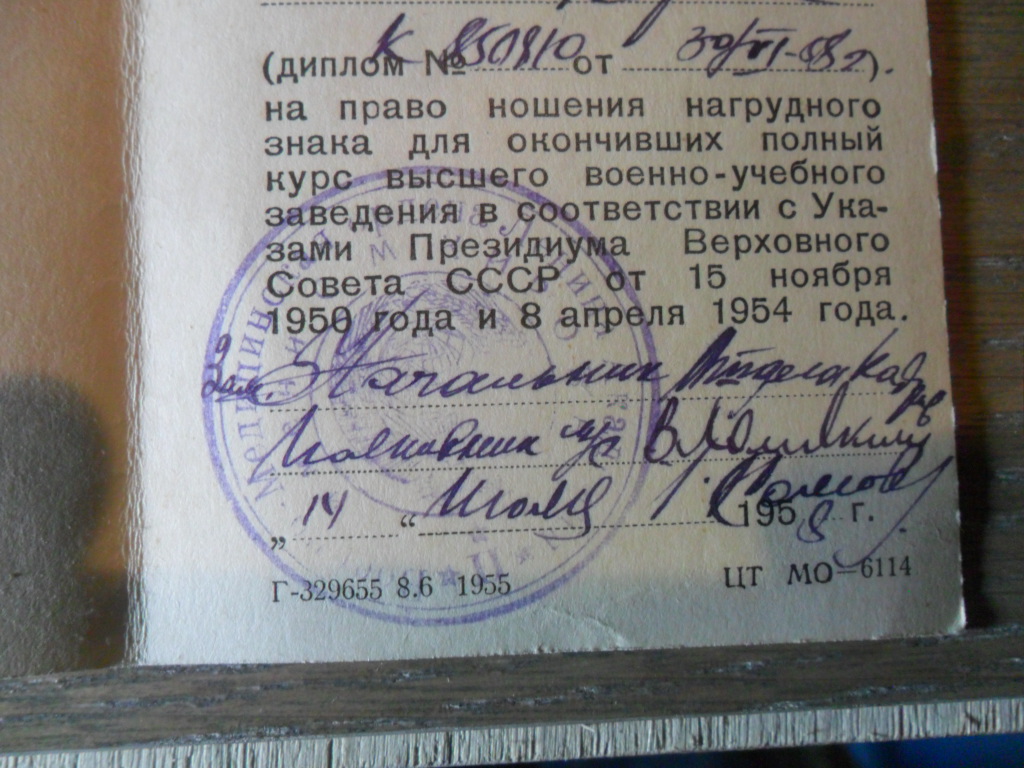 (диплом № К 850910 от 30/VI-58г).
на право ношения нагрудного
знака для окончивших полный
курс высшего военно-учебного
заведения в соответствии с Ука-
зами Президиума Верховного
Совета СССР от 15 ноября
1950 года и 8 апреля 1954 года.
Зам. Начальник отдела кадров
Полковник м/с
„ 14 “ Июля 1958 г.
Г-329655 8.6 1955 ЦТ МО—6114